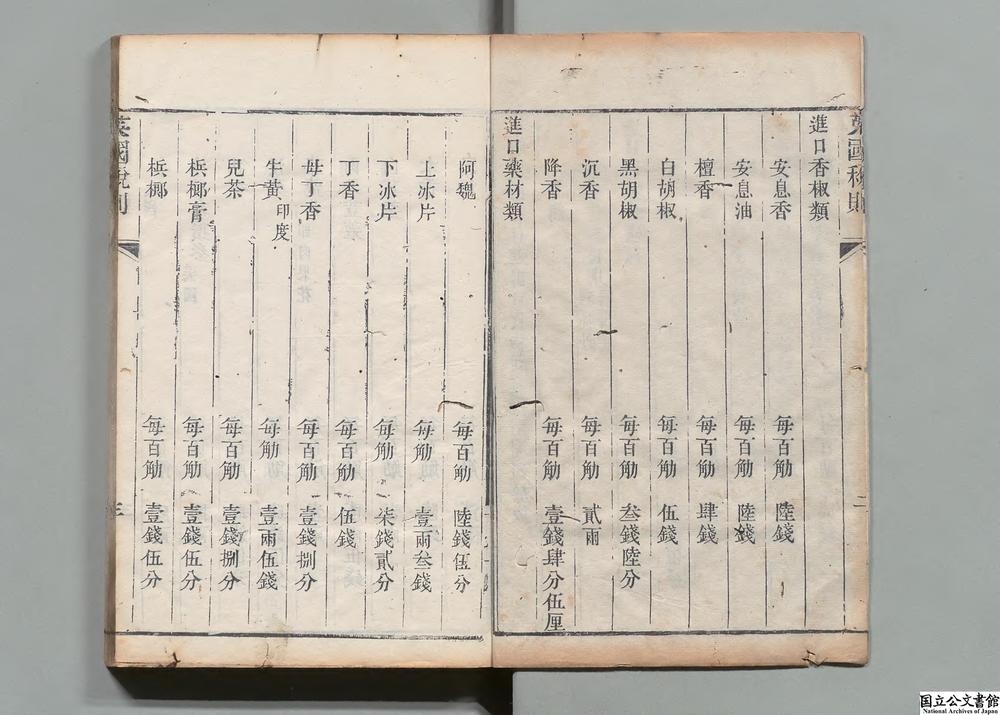 進口香椒類
安息香 每百觔 陸錢
安息油 每百觔 陸錢
檀香 每百觔 肆錢
白胡椒 每百觔 伍錢
黑胡椒 每百觔 叁錢陸分
沉香 每百觔 貳兩
降香 每百觔 壹錢肆分伍厘
進口藥材類
阿魏 每百觔 陸錢伍分
上冰片 每觔 壹兩叁錢
下冰片 每觔 柒錢貳分
丁香 每百觔 伍錢
母丁香 每百觔 壹錢捌分
牛黃 印度 每觔 壹兩伍錢
兒茶 每百觔 壹錢捌分
梹榔膏 每百觔 壹錢伍分
梹榔 每百觔 壹錢伍分
英國稅則
二
三
国立公文書館
National Archives of Japan